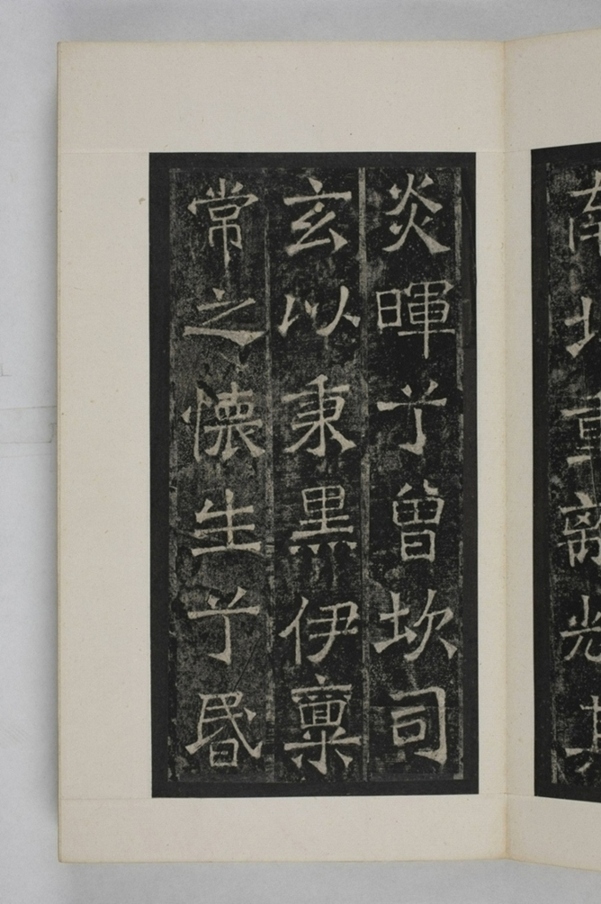 炎暉亍曾坎司
玄以秉黑伊稟
常之懷生亍昬